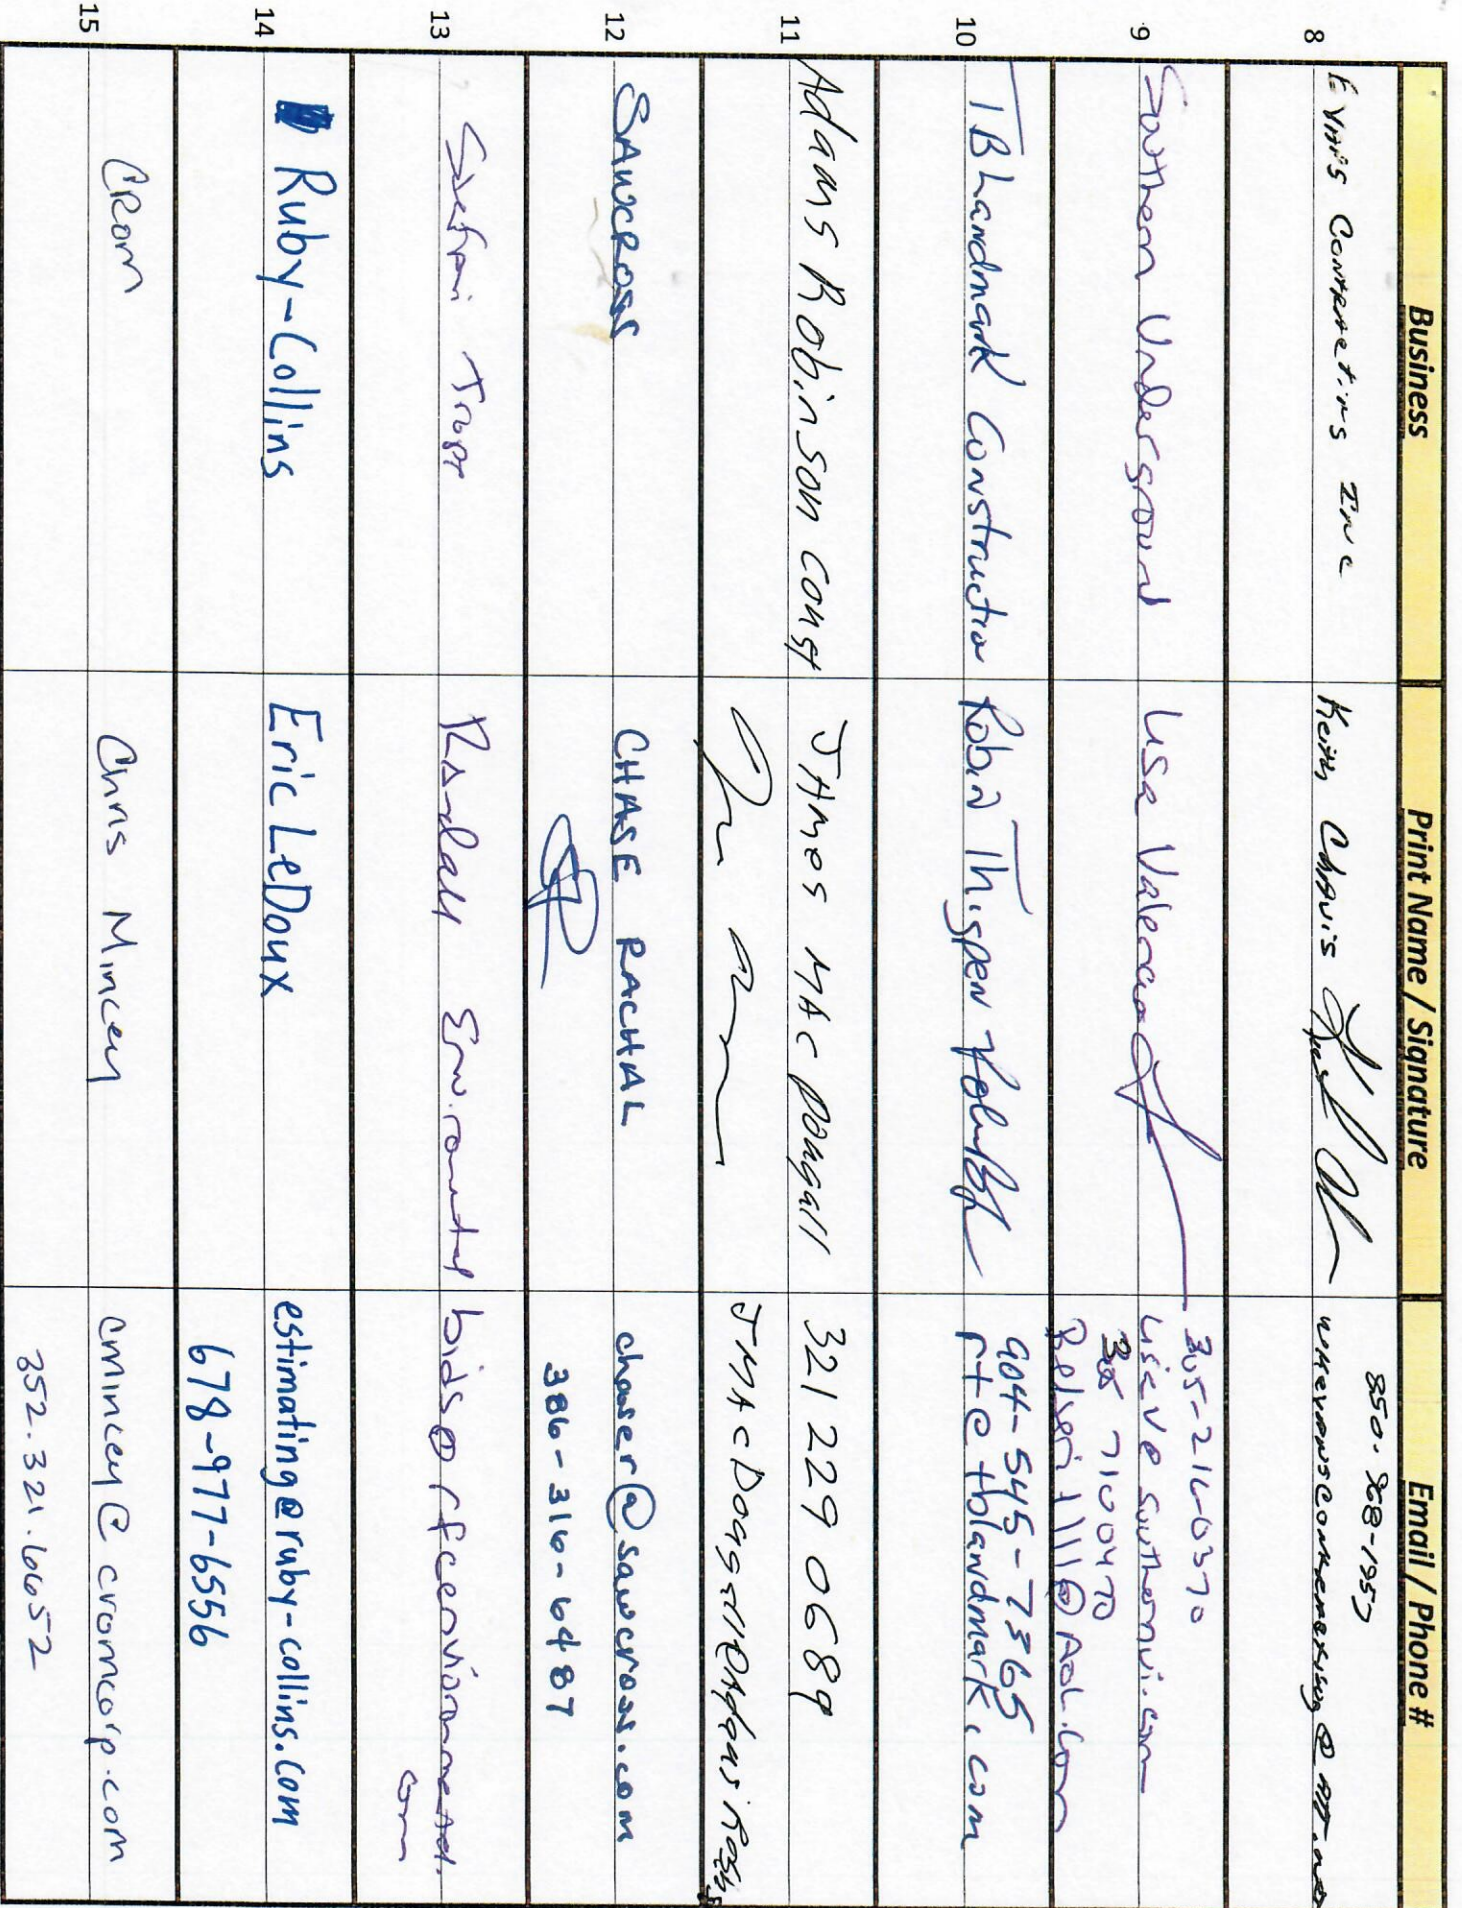 Business Print Name / Signature Email / Phone #
8 Evans Contracting Inc Keith Chavis 850.
9 Southern Underground Lisa Valenciano
305-216-0370
lisav@southernui.com
7100470
@Aol.com
10 TB Landmark Construction Robin Thigpen
904-545-7365
rt@tblandmark.com
11 Adams Robinson const JAmes MAc Dougall 321 229 0689
JMAcDougall@Adams
12 SAWCROSS CHASE RACHAL chaser@sawcross.com
386-316-6487
13 Randall bids@rfcenvironmental.
com
14 Ruby-Collins Eric LeDoux estimating@ruby-collins.com
678-977-6556
15 CROM Chris Mincey cmincey@cromcorp.com
352.321.6652